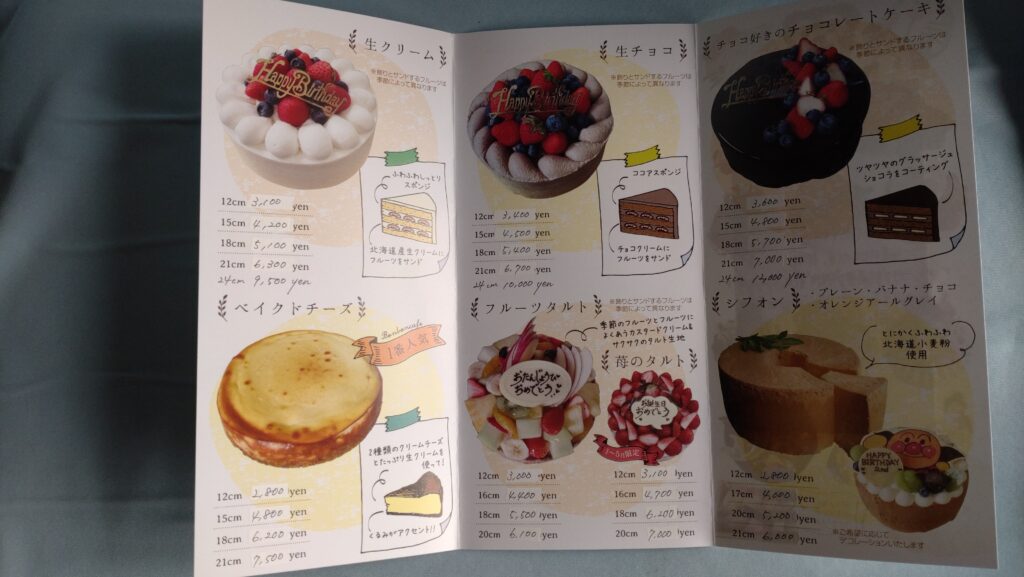 生クリーム
※飾りとサンドするフルーツは
季節によって異なります
Happy Birthday
ふわふわしっとり
スポンジ
北海道産生クリームに
フルーツをサンド
12cm 3,100 yen
15cm 4,200 yen
18cm 5,100 yen
21cm 6,300 yen
24cm 9,500 yen
生チョコ
※飾りとサンドするフルーツは
季節によって異なります
Happy Birthday
ココアスポンジ
チョコクリームに
フルーツをサンド
12cm 3,400 yen
15cm 4,500 yen
18cm 5,400 yen
21cm 6,700 yen
24cm 10,000 yen
チョコ好きのチョコレートケーキ
※飾りとサンドするフルーツは
季節によって異なります
Happy Birthday
ツヤツヤのグラッサージュ
ショコラをコーティング
12cm 3,600 yen
15cm 4,800 yen
18cm 5,700 yen
21cm 7,000 yen
24cm 12,000 yen
ベイクドチーズ
Bonboncafe
1番人気
2種類のクリームチーズ
とたっぷり生クリームを
使って!
くるみがアクセント!!
12cm 2,800 yen
15cm 4,800 yen
18cm 6,200 yen
21cm 7,500 yen
フルーツタルト
※飾りとサンドするフルーツは
季節によって異なります
季節のフルーツとフルーツに
よくあうカスタードクリーム&
サクサクのタルト生地
おたんじょうび
おめでとう
12cm 3,000 yen
16cm 4,400 yen
18cm 5,500 yen
20cm 6,100 yen
苺のタルト
お誕生日
おめでとう
1~5月限定
12cm 3,100 yen
16cm 4,700 yen
18cm 6,200 yen
20cm 7,000 yen
シフォン
・プレーン・バナナ・チョコ
・オレンジアールグレイ
とにかくふわふわ
北海道小麦粉
使用
HAPPY
BIRTHDAY
12cm 2,800 yen
17cm 4,000 yen
20cm 5,200 yen
21cm 6,000 yen
※ご希望に応じて
デコレーションいたします